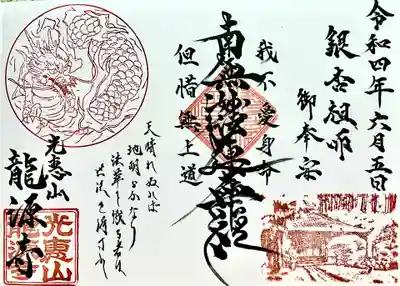 令和四年六月五日
銀杏祖師
御奉安
我不愛身命
南無妙法蓮華経
但惜無上道
天晴れぬれば
地明らかなり
法華を識る者は
世法を得可きか
光恵山
龍源寺
光恵山
龍源寺